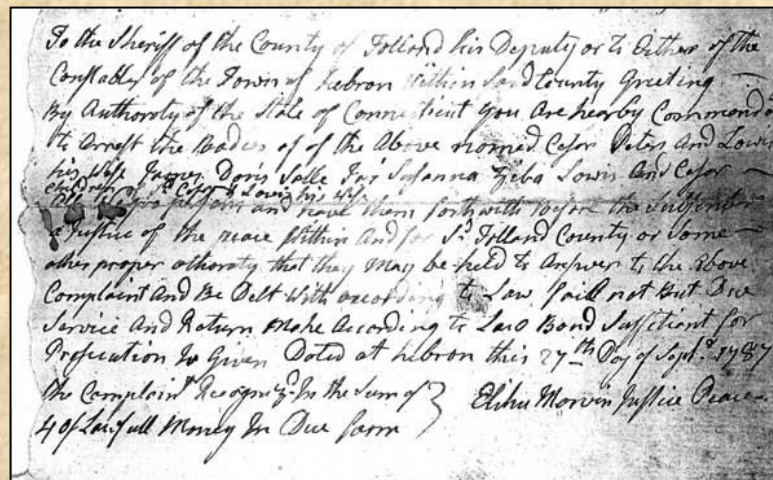 To the Sheriff of the County of Tolland his Deputy or to Either of the
Constables of the Town of hebron Within Said County Greeting —
By Authoroty of the State of Connecticut you Are hearby Commend
to Arrest the Bodies of of the Above named Cesor Peters And Lowis
his Wife James Doris Salle Susanna Ziba Lowis And Cesor —
Children of Sd Cesor & Lowis his wife
All Negro persons and have them forthwith before the
a Justice of the peace Within And for Sd Tolland County or Some —
other proper othoroty that they May be held to Answer to the Above
Complaint And Be Delt With according to Law, fail not But Due
Service And Return Make According to Law Bond Suffitient for
Prosicution Is Given Dated at hebron this 27th Day of Septr 1787
the Complaint Recognizd In the Sum of
40f Lawfull Money In Due form
Elihu Marvin Justice Peace